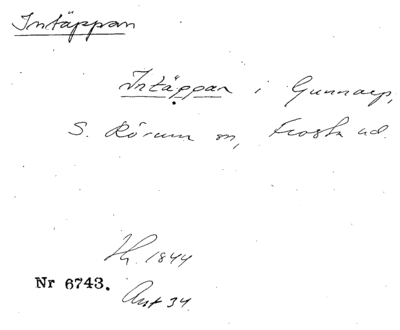 Intäppan
Intäppan i Gunnarp,
S. Rörum sn, Frosta hd.
Hf. 1844
Nr 6743.
Ant 34.